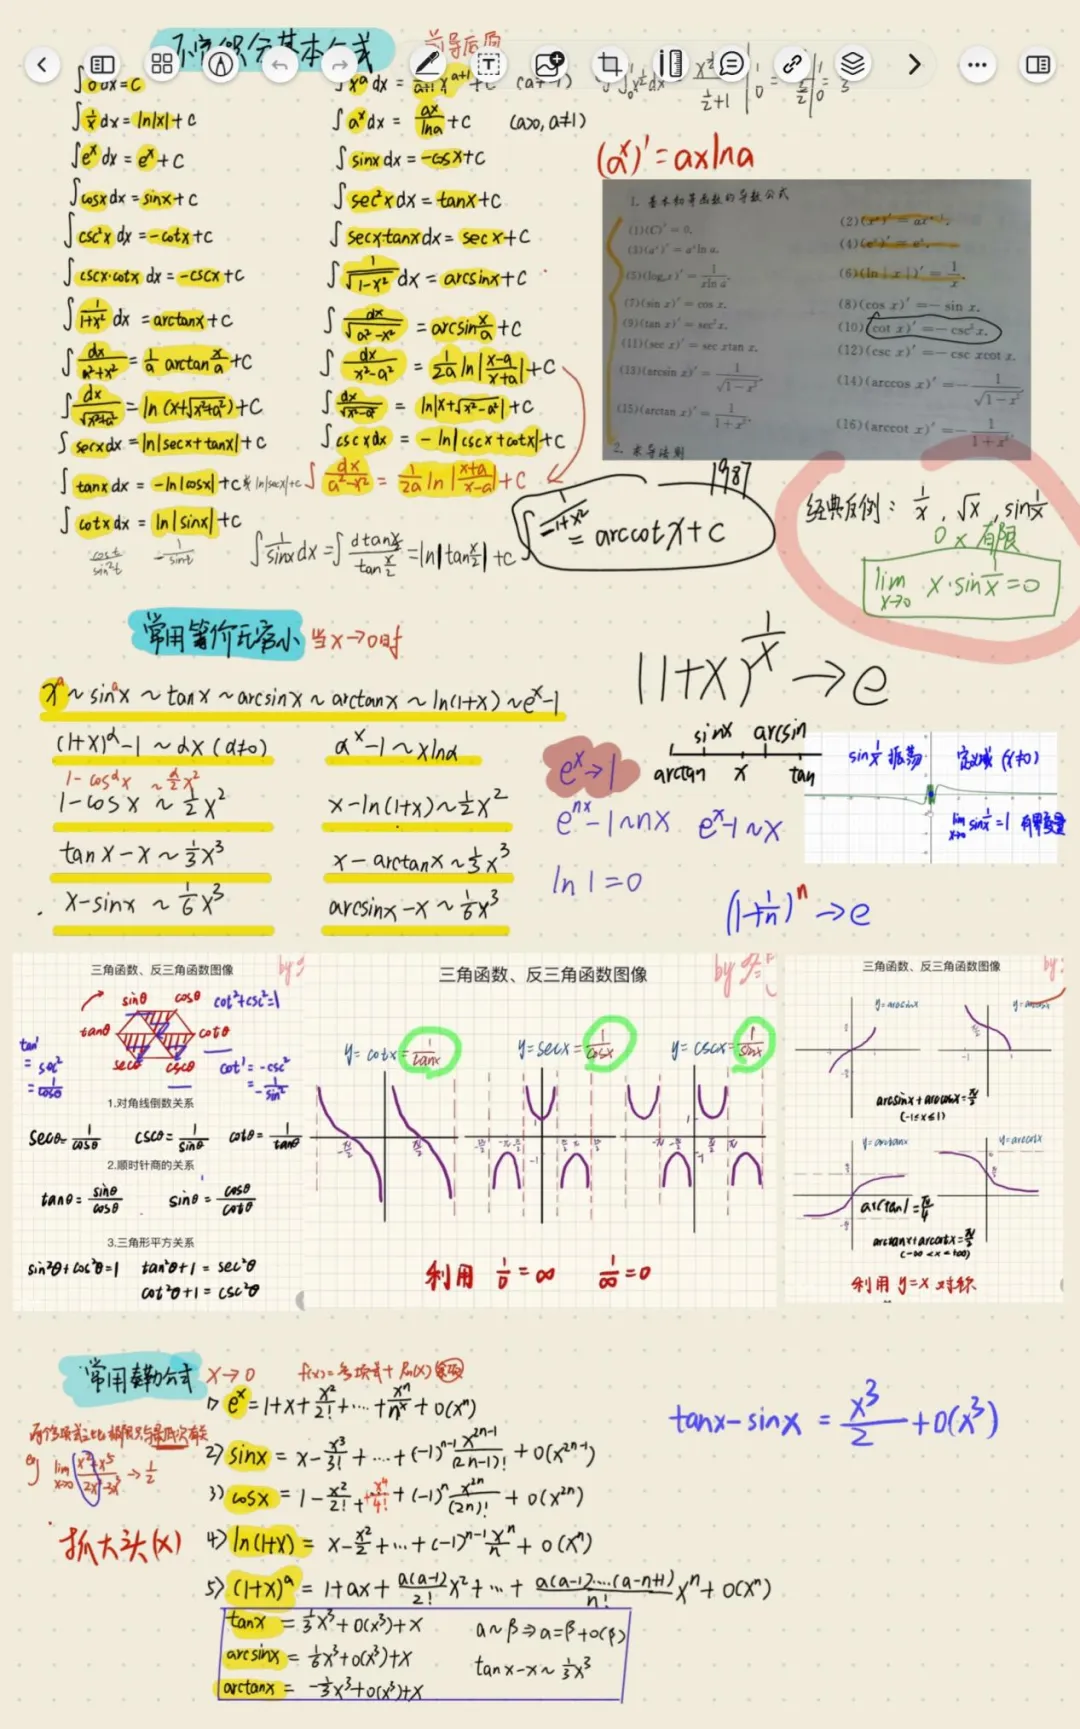 不定积分基本公式
∫0dx=C
∫x^a dx = 1/(a+1) x^(a+1) + C (a≠-1)
∫1/x dx = ln|x|+C
∫a^x dx = ax/lna +C (a>0, a≠1)
∫e^x dx = e^x+C
∫sinxdx = -cosx+C
(a^x)' = axlna
∫cosxdx = sinx+C
∫sec²xdx = tanx+C
∫csc²x dx = -cotx+C
∫secx·tanxdx = secx+C
∫cscx·cotx dx = -cscx+C
∫1/√(1-x²) dx = arcsinx+C
∫1/(1+x²) dx = arctanx+C
∫dx/√(a²-x²) = arcsin x/a +C
∫dx/(a²+x²) = 1/a arctan x/a +C
∫dx/(x²-a²) = 1/2a ln|(x-a)/(x+a)|+C
∫dx/√(x²+a²) = ln(x+√(x²+a²))+C
∫dx/√(x²-a²) = ln|x+√(x²-a²)|+C
∫secxdx = ln|secx+tanx|+C
∫cscxdx = -ln|cscx+cotx|+C
∫tanxdx = -ln|cosx|+C 或 ln|secx|+C
∫dx/(a²-x²) = 1/2a ln|(x+a)/(x-a)|+C
∫cotxdx = ln|sinx|+C
cost/sin²t -1/sint
∫1/sinx dx = ∫ dtan x/2 / tan x/2 = ln|tan x/2|+C
1987
∫ -1/(1+x²) = arccotx+C
1. 基本初等函数的导数公式
(1)(C)' = 0.
(2)(x^a)' = ax^(a-1).
(3)(a^x)' = a^x ln a.
(4)(e^x)' = e^x.
(5)(log_a x)' = 1/(xln a).
(6)(ln|x|)' = 1/x.
(7)(sin x)' = cos x.
(8)(cos x)' = - sin x.
(9)(tan x)' = sec²x.
(10)(cot x)' = - csc²x.
(11)(sec x)' = sec xtan x.
(12)(csc x)' = - csc xcot x.
(13)(arcsin x)' = 1/√(1-x²).
(14)(arccos x)' = - 1/√(1-x²)
(15)(arctan x)' = 1/(1+x²).
(16)(arccot x)' = - 1/(1+x²)
2. 求导法则
经典反例: 1/x, √x, sin1/x
0×有限
lim x→0 x·sin1/x=0
常用等价无穷小 当x→0时
x^a ~ sin^a x ~ tanx ~ arcsinx ~ arctanx ~ ln(1+x) ~ e^x-1
(1+x)^α-1 ~ αx (α≠0)
a^x-1 ~ xlna
1-cos^α x ~ α/2 x²
1-cosx ~ 1/2 x²
x-ln(1+x) ~ 1/2 x²
tanx-x ~ 1/3 x³
x-arctanx ~ 1/3 x³
x-sinx ~ 1/6 x³
arcsinx-x ~ 1/6 x³
(1+x)^(1/x) → e
sinx arcsin
arctan x tan
e^x→1
e^(nx)-1~nx e^x-1~x
ln1=0
(1+1/n)^n → e
sin1/x 振荡 定义域 (x≠0)
lim x→0 sin1/x=1 有界变量
三角函数、反三角函数图像
sinθ cosθ cot²+csc²=1
tanθ cotθ
secθ cscθ
tan' = sec² = 1/cosθ
cot' = -csc² = -1/sin²
1.对角线倒数关系
secθ=1/cosθ cscθ=1/sinθ cotθ=1/tanθ
2.顺时针商的关系
tanθ=sinθ/cosθ sinθ=cosθ/cotθ
3.三角形平方关系
sin²θ+cos²θ=1 tan²θ+1=sec²θ
cot²θ+1=csc²θ
三角函数、反三角函数图像
y=cotx=1/tanx y=secx=1/cosx y=cscx=1/sinx
利用 1/0=∞ 1/∞=0
三角函数、反三角函数图像
y=arcsinx y=arccosx
arcsinx+arccosx=π/2
(-1≤x≤1)
y=arctanx y=arccotx
arctan1=π/4
arctanx+arccotx=π/2
(-∞<x<+∞)
利用 y=x 对称
常用泰勒公式 x→0 f(x)=多项式+Rn(x) 余项
1) e^x=1+x+x²/2!+…+x^n/n^x+o(x^n)
两个多项式之比极限只与最低次有关
eg lim x→0 (x²+x⁵)/(2x²-3x³) → 1/2
2) sinx = x-x³/3!+…+(-1)^(n-1) x^(2n-1)/(2n-1)!+o(x^(2n-1))
3) cosx = 1-x²/2!+x⁴/4!+(-1)^n x^(2n)/(2n)!+o(x^(2n))
抓大头(x)
4) ln(1+x) = x-x²/2+…+(-1)^(n-1) x^n/n+o(x^n)
5) (1+x)^a = 1+ax+a(a-1)/2! x²+…+a(a-1)…(a-n+1)/n! x^n+o(x^n)
tanx = 1/3x³+o(x³)+x
arcsinx = 1/6x³+o(x³)+x
arctanx = -1/3x³+o(x³)+x
α~β⇒α=β+o(β)
tanx-x~1/3x³
tanx-sinx = x³/2+o(x³)